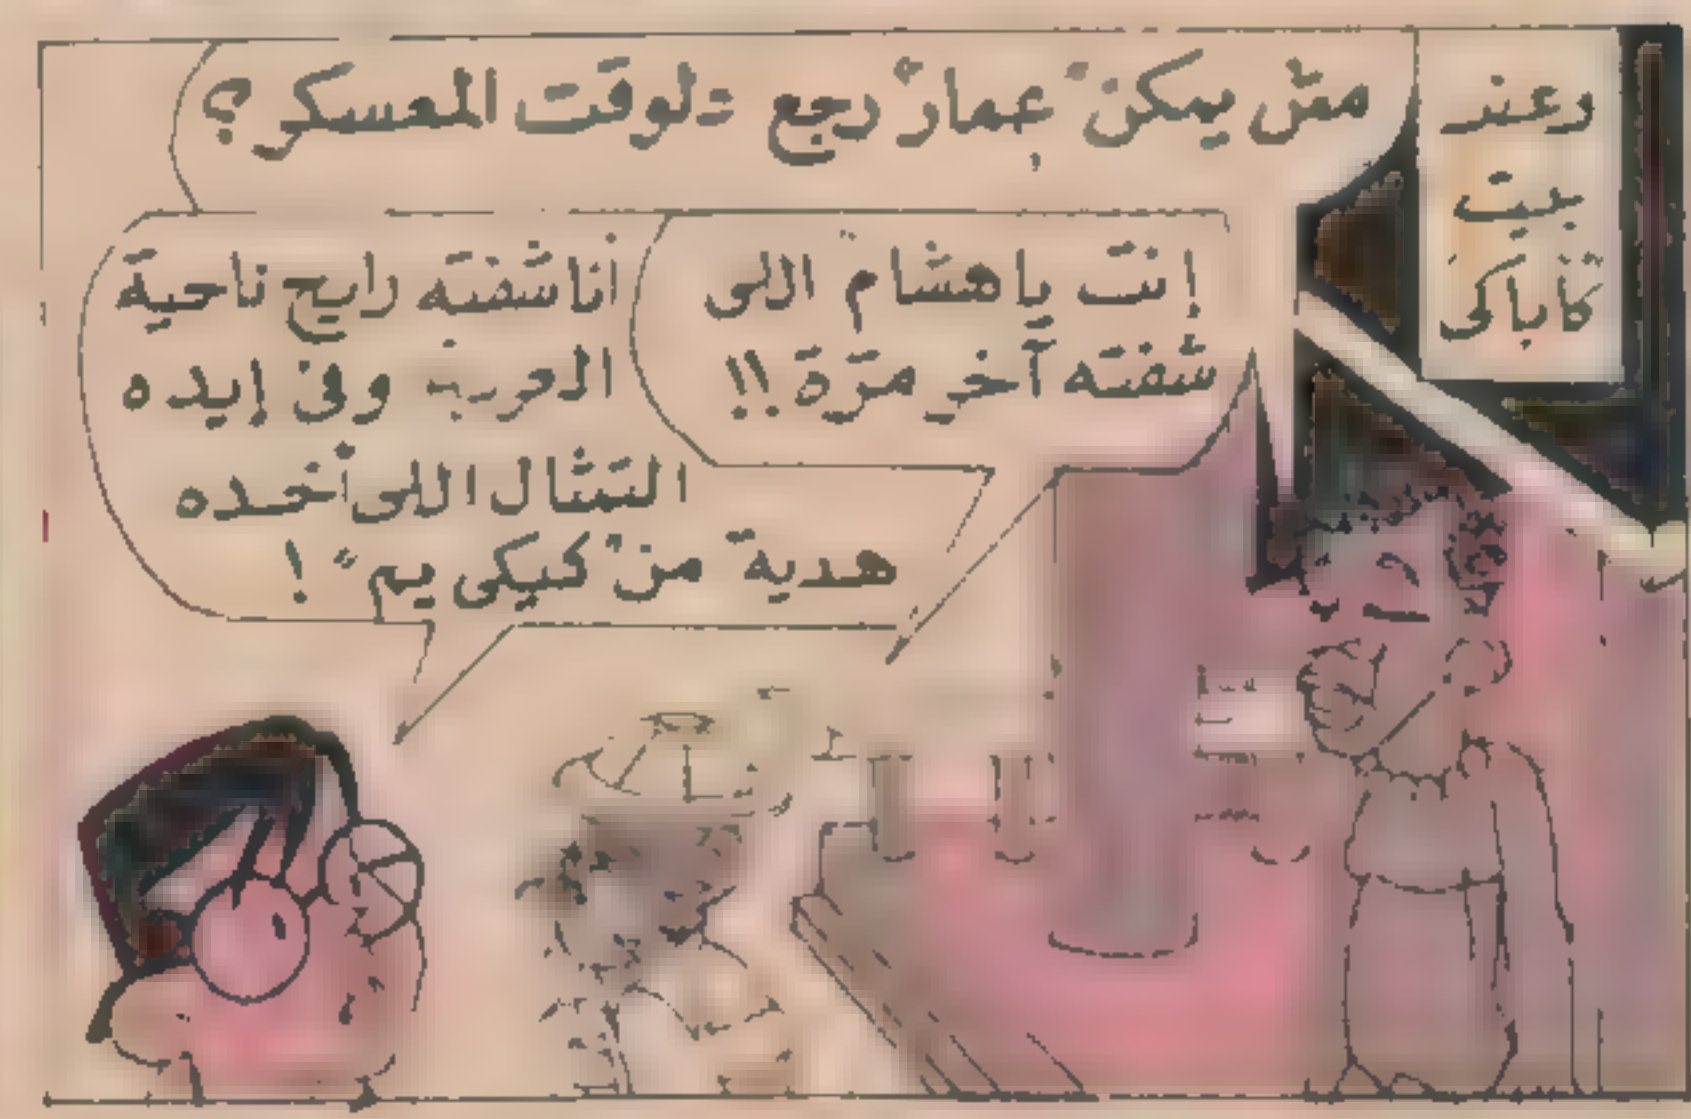 وعند
بيت
كاباكى
مش يمكن عمار رجع دلوقت المعسكر؟
إنت ياهشام اللى
شفته آخر مرّة!!
أنا شفته رايح ناحية
العربية وفى إيده
التمثال اللى أخده
هدية من كيكى يم!